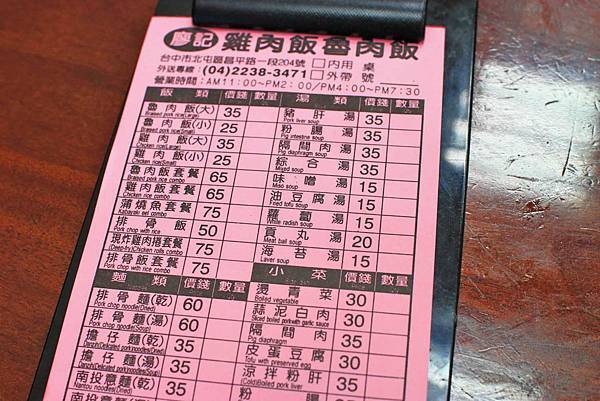 廖記 雞肉飯魯肉飯
台中市北屯區昌平路一段204號 □內用 桌
外送專線：(04)2238-3471 □外帶 號
營業時間：AM11:00~PM2:00/PM4:00~PM7:30
飯類 價錢 數量
魯肉飯(大) 35
Braised pork rice(Large)
魯肉飯(小) 25
Braised pork rice(Small)
雞肉飯(大) 35
Chicken rice(Large)
雞肉飯(小) 25
Chicken rice(Small)
魯肉飯套餐 65
Braised pork rice combo
雞肉飯套餐 65
Chicken rice combo
蒲燒魚套餐 75
Kabayaki set combo
排骨飯 50
Pork chop with rice
現炸雞肉捲套餐 75
(Deep-fry)Chicken rolls combo
排骨飯套餐 75
Pork chop with rice combo
麵類 價錢 數量
排骨麵(乾) 60
Pork chop noodles(Dried)
排骨麵(湯) 60
Pork chop noodles(Soup)
擔仔麵(乾) 35
擔仔麵(湯) 35
南投意麵(乾) 35
Nantou noodles(Dried)
南投意麵(湯)
湯類 價錢 數量
豬肝湯 35
Pork liver soup
粉腸湯 35
Pig intestine soup
隔間肉湯 35
Pig diaphragm soup
綜合湯 35
Mixed soup
味噌湯 15
Miso soup
油豆腐湯 15
Fried tofu soup
蘿蔔湯 15
White radish soup
貢丸湯 20
Meat ball soup
海苔湯 15
Laver soup
小菜 價錢 數量
燙青菜 30
Boiled vegetable
蒜泥白肉 30
Sliced boiled pork with garlic sauce
隔間肉 35
Pig diaphragm
皮蛋豆腐 30
Tofu with preserved egg
涼拌粉肝 35
(Cold)Boiled pork liver
粉